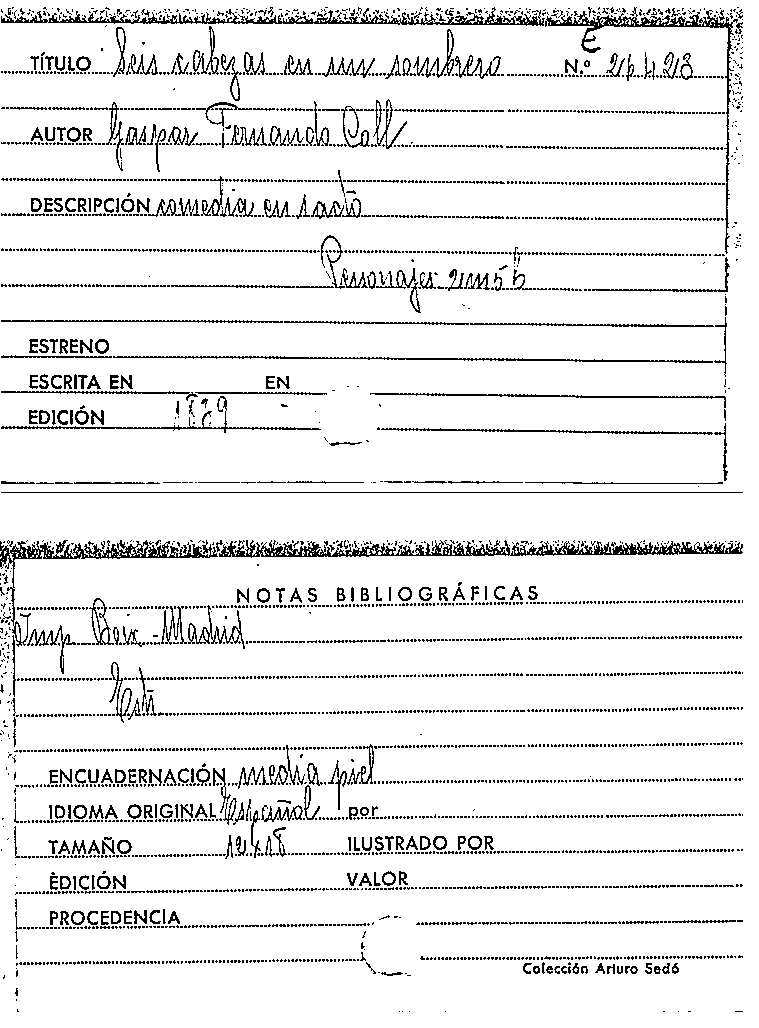 E
TÍTULO Seis cabezas en un sombrero N.º 26428
AUTOR Gaspar Fernando Coll
DESCRIPCIÓN comedia en 1 acto
Personajes 2m 5h
ESTRENO
ESCRITA EN EN
EDICIÓN 1839 -
NOTAS BIBLIOGRÁFICAS
Imp Boix - Madrid
ENCUADERNACIÓN media piel
IDIOMA ORIGINAL Español por
TAMAÑO 12x18 ILUSTRADO POR
EDICIÓN VALOR
PROCEDENCIA
Colección Arturo Sedó